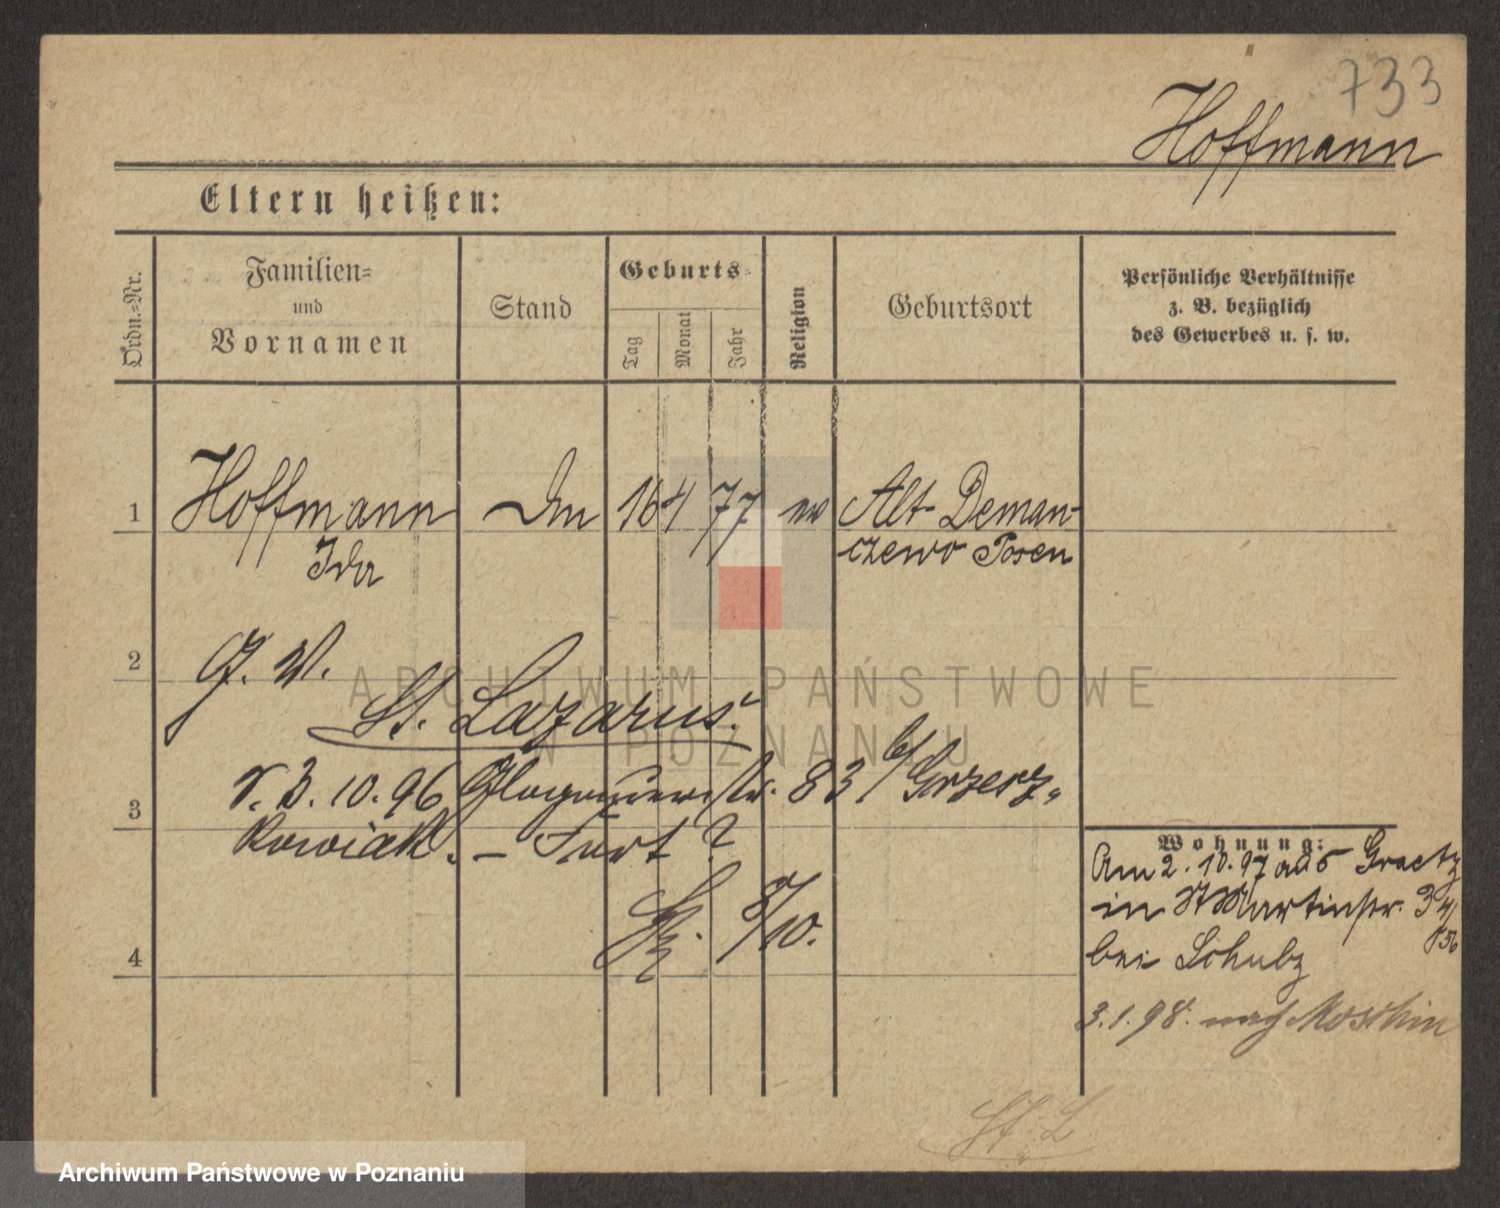 733
Hoffmann
Eltern heißen:
Ordn.=Nr.
Familien=
und
Vornamen
Stand
Geburts=
Tag
Monat
Jahr
Religion
Geburtsort
Persönliche Verhältnisse
z. B. bezüglich
des Gewerbes u. s. w.
1 Hoffmann 16 4 77 Alt-Deman-
Ida czewo Posen
2 G. W.
St. Lazarus.
3 v. 3. 10. 96 Glogauerstr. 83 b/ Grzerz=
kowiak. – Fort?
8/10.
4
Wohnung:
Am 2. 10. 97 aus Graetz
in St Martinstr. 34/
56
bei Schulz
3. 1. 98. nach Moschin
St. L
ARCHIWUM PAŃSTWOWE
W POZNANIU
Archiwum Państwowe w Poznaniu